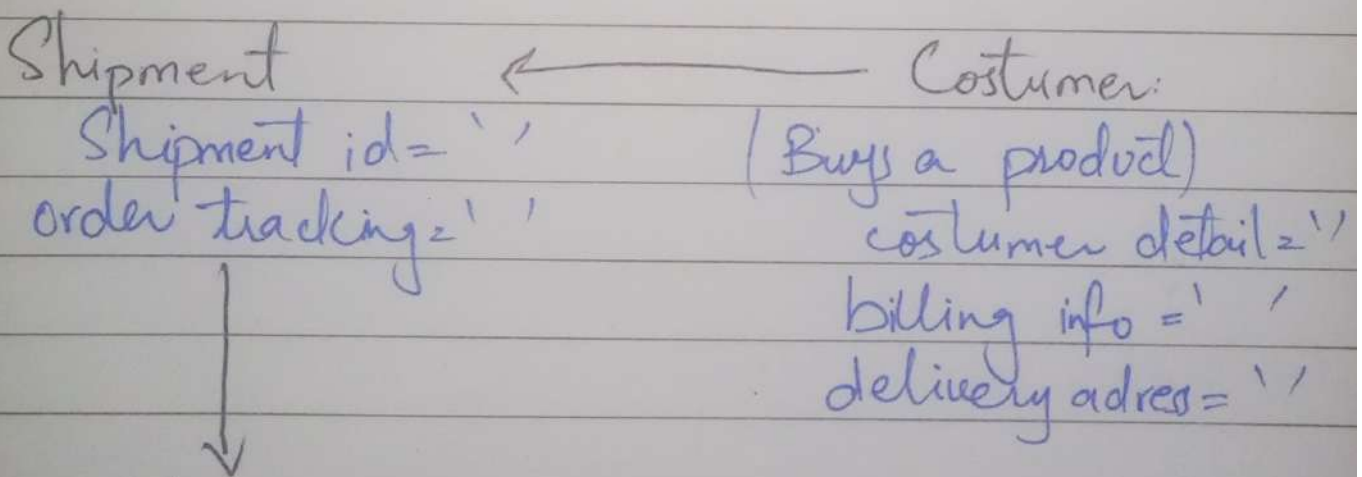 Shipment
Shipment id= ' '
order tracking= ' '
Costumer:
(Buys a product)
costumer detail= ' '
billing info = ' '
delivery adress= ' '